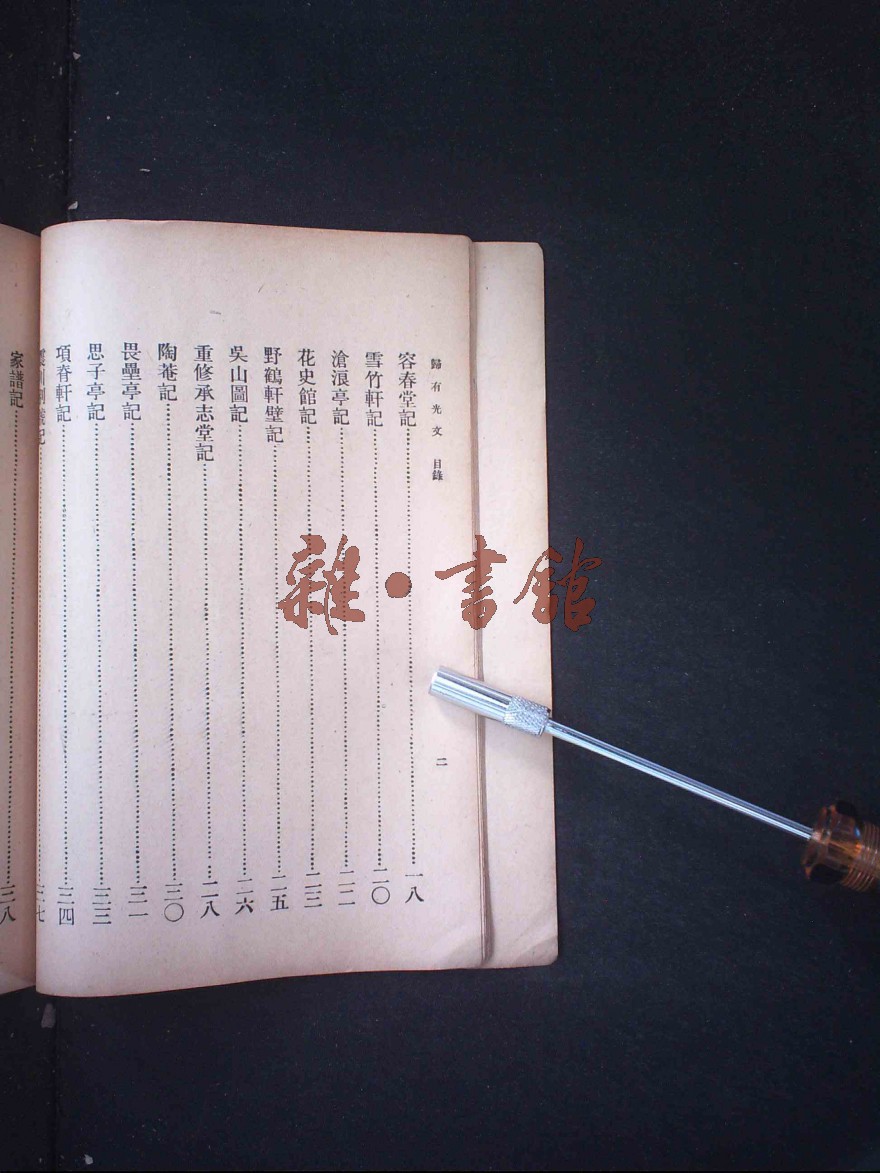 歸有光文 目錄 二
容春堂記 一八
雪竹軒記 二〇
滄浪亭記 二二
花史館記 二三
野鶴軒壁記 二五
吳山圖記 二六
重修承志堂記 二八
陶菴記 三〇
畏壘亭記 三一
思子亭記 三三
項脊軒記 三四
記 三七
家譜記 三八
雜·書館